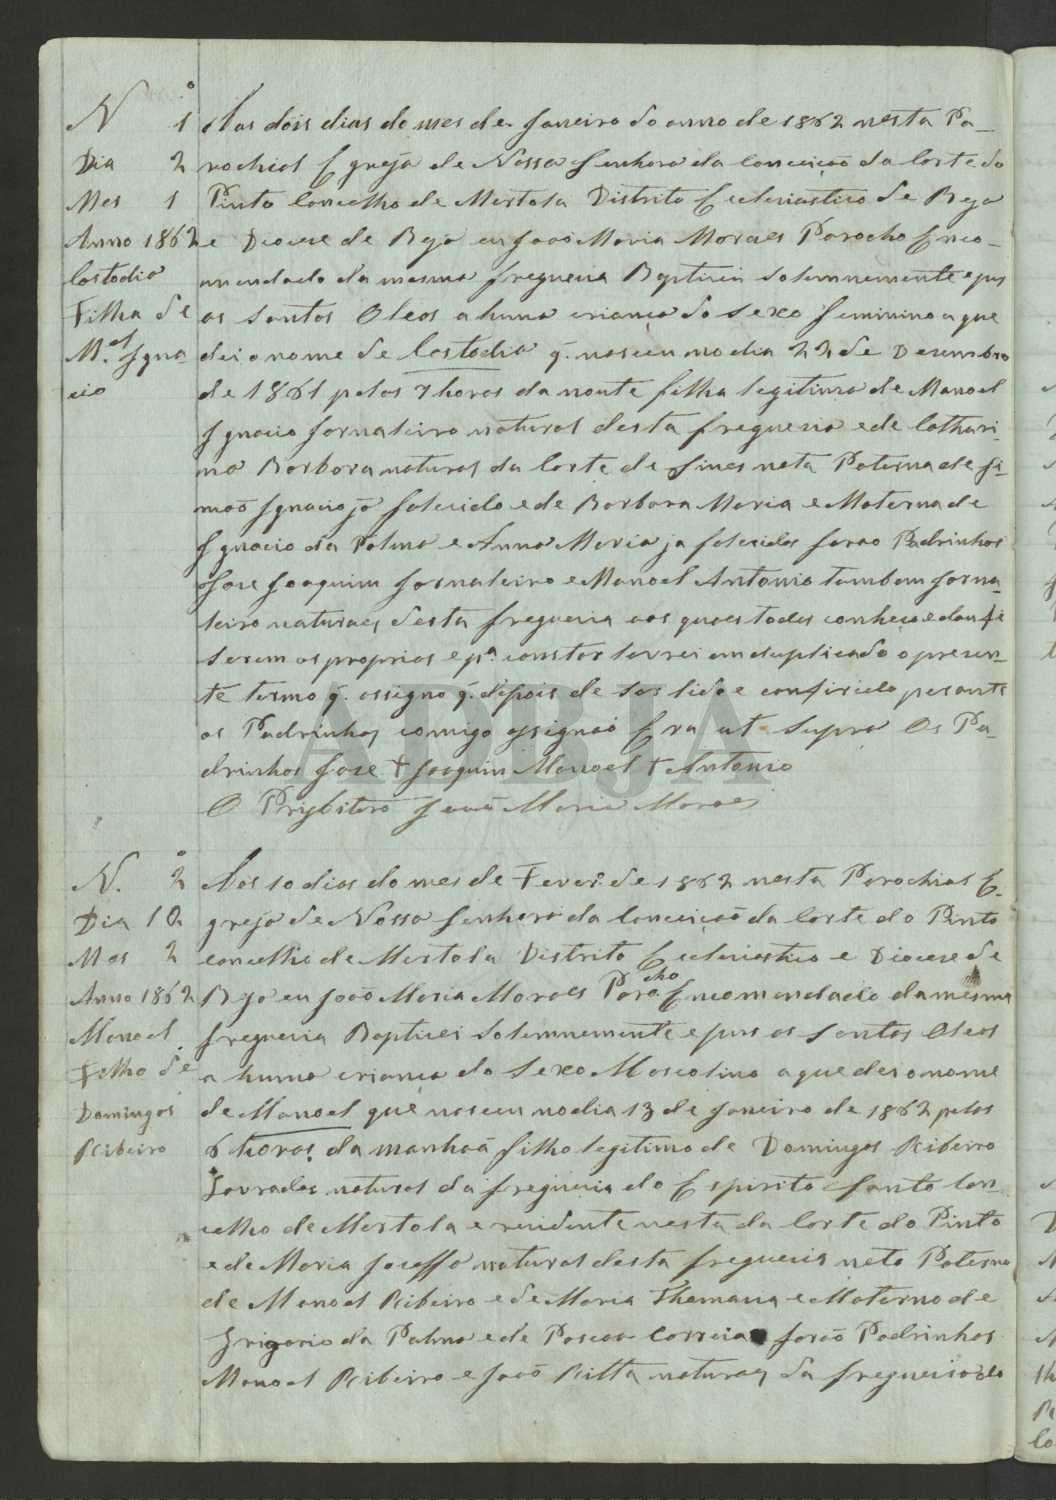 N.º 1
Dia 2
Mes 1
Anno 1862
Costodia
Filha de
M.el Igna
cio
Aos dois dias do mes de Janeiro do anno de 1862 nesta Pa-
rochial Egreja de Nossa Senhora da Conceição da Corte do
Pinto Concelho de Mertola Distrito Eclesiastico de Beja
e Diocese de Beja eu João Maria Moraes Parocho Enco-
mendado da mesma freguesia Baptisei Solemnemente e pus
os Santos Oleos a huma criança do Sexo Feminino a que
dei o nome de Costodia q. nasceu no dia 22 de Desembro
de 1861 pelas 7 horas da noute filha legitima de Manoel
Ignacio Jornaleiro natural desta freguesia e de Cathari-
na Barbora natural da Corte de Sines neta Paterna de Si-
mão Ignacio já falecido e de Barbora Maria e Materna de
Ignacio da Palma e Anna Maria ja falecidos forão Padrinhos
Jose Joaquim Jornaleiro e Manoel Antonio tambem Jorna-
leiro naturaes desta freguesia aos quaes todos conheço e dou fé
Serem os proprios e p.ª constar lavrei em duplicado o presen-
te termo q. assigno q. depois de ser lido e conferido perante
os Padrinhos comigo assignão Era ut Supra Os Pa-
drinhos Jose + Joaquim Manoel + Antonio
O Prisbitero João Maria Moraes
ADBJA
N.º 2
Dia 10
Mes 2
Anno 1862
Manoel
Filho de
Domingos
Ribeiro
Aos 10 dias do mes de Fever.º de 1862 nesta Parochial E-
greja de Nossa Senhora da Conceição da Corte do Pinto
concelho de Mertola Distrito Eclesiastico e Diocese de
Beja eu João Maria Moraes Parocho Encomendado da mesma
freguesia Baptisei Solemnemente e pus os Santos Oleos
a huma criança do Sexo Mascolino a que dei o nome
de Manoel que nasceu no dia 13 de Janeiro de 1862 pelas
6 horas da manhaã filho legitimo de Domingos Ribeiro
Lavrador natural da freguesia do Espirito Santo Con-
celho de Mertola e residente nesta da Corte do Pinto
e de Maria Joseffa natural desta freguesia neto Paterno
de Manoel Ribeiro e de Maria Thomasia e Materno de
Grigorio da Palma e de Pascoa Correia forão Padrinhos
Manoel Ribeiro e João Ritta naturaes da freguesia do